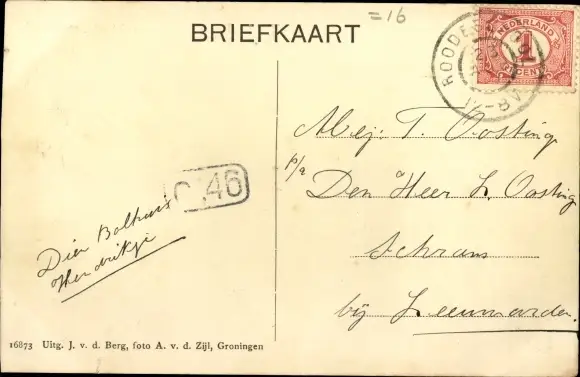 =16
BRIEFKAART
NEDERLAND
1
ROODES
Mej: T. Oosting
p/a
Den Heer L. Oosting
Schrans
bij Leeuwarden.
46
Dien Bolhuis
Hendrikje
16873 Uitg. J. v. d. Berg, foto A. v. d. Zijl, Groningen